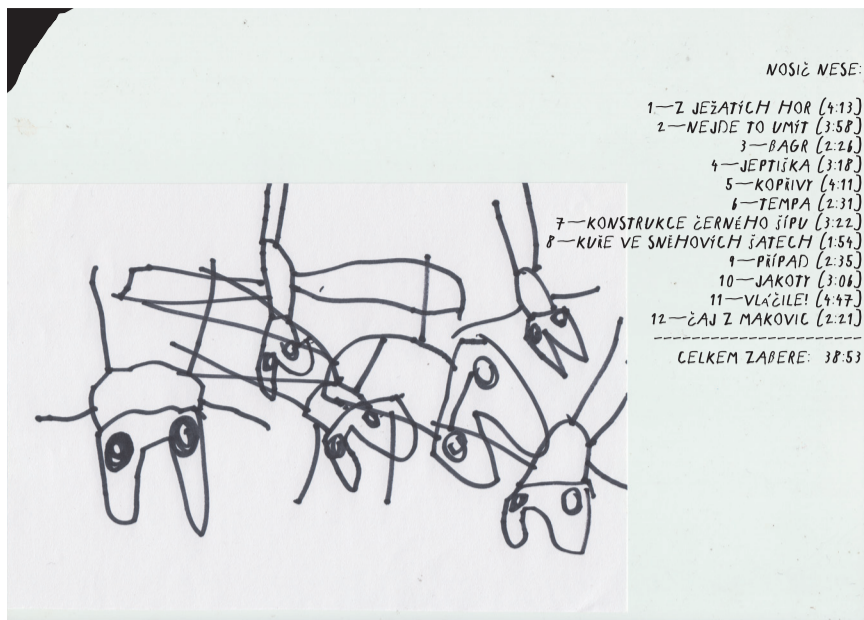 NOSIČ NESE:
1—Z JEŽATÝCH HOR (4:13)
2—NEJDE TO UMÝT (3:58)
3—BAGR (2:26)
4—JEPTIŠKA (3:18)
5—KOPŘIVY (4:11)
6—TEMPA (2:31)
7—KONSTRUKCE ČERNÉHO ŠÍPU (3:22)
8—KUŘE VE SNĚHOVÝCH ŠATECH (1:54)
9—PŘÍPAD (2:35)
10—JAKOTY (3:06)
11—VLÁČILE! (4:47)
12—ČAJ Z MAKOVIC (2:21)
CELKEM ZABERE: 38:53